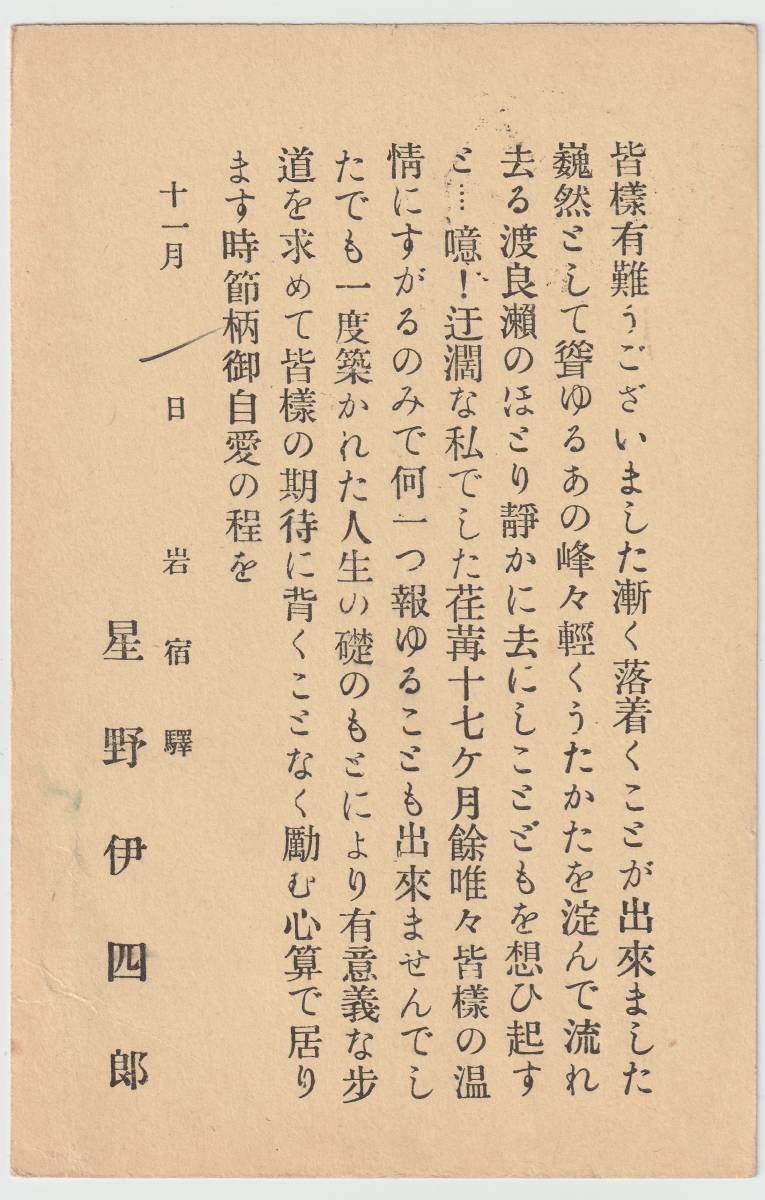 皆樣有難うございました漸く落着くことが出來ました
巍然として聳ゆるあの峰々輕くうたかたを淀んで流れ
去る渡良瀨のほとり靜かに去にしことどもを想ひ起す
と…噫！迂濶な私でした荏苒十七ケ月餘唯々皆樣の温
情にすがるのみで何一つ報ゆることも出來ませんでし
たでも一度築かれた人生の礎のもとにより有意義な步
道を求めて皆樣の期待に背くことなく勵む心算で居り
ます時節柄御自愛の程を
十一月 日 岩宿驛
星野伊四郎